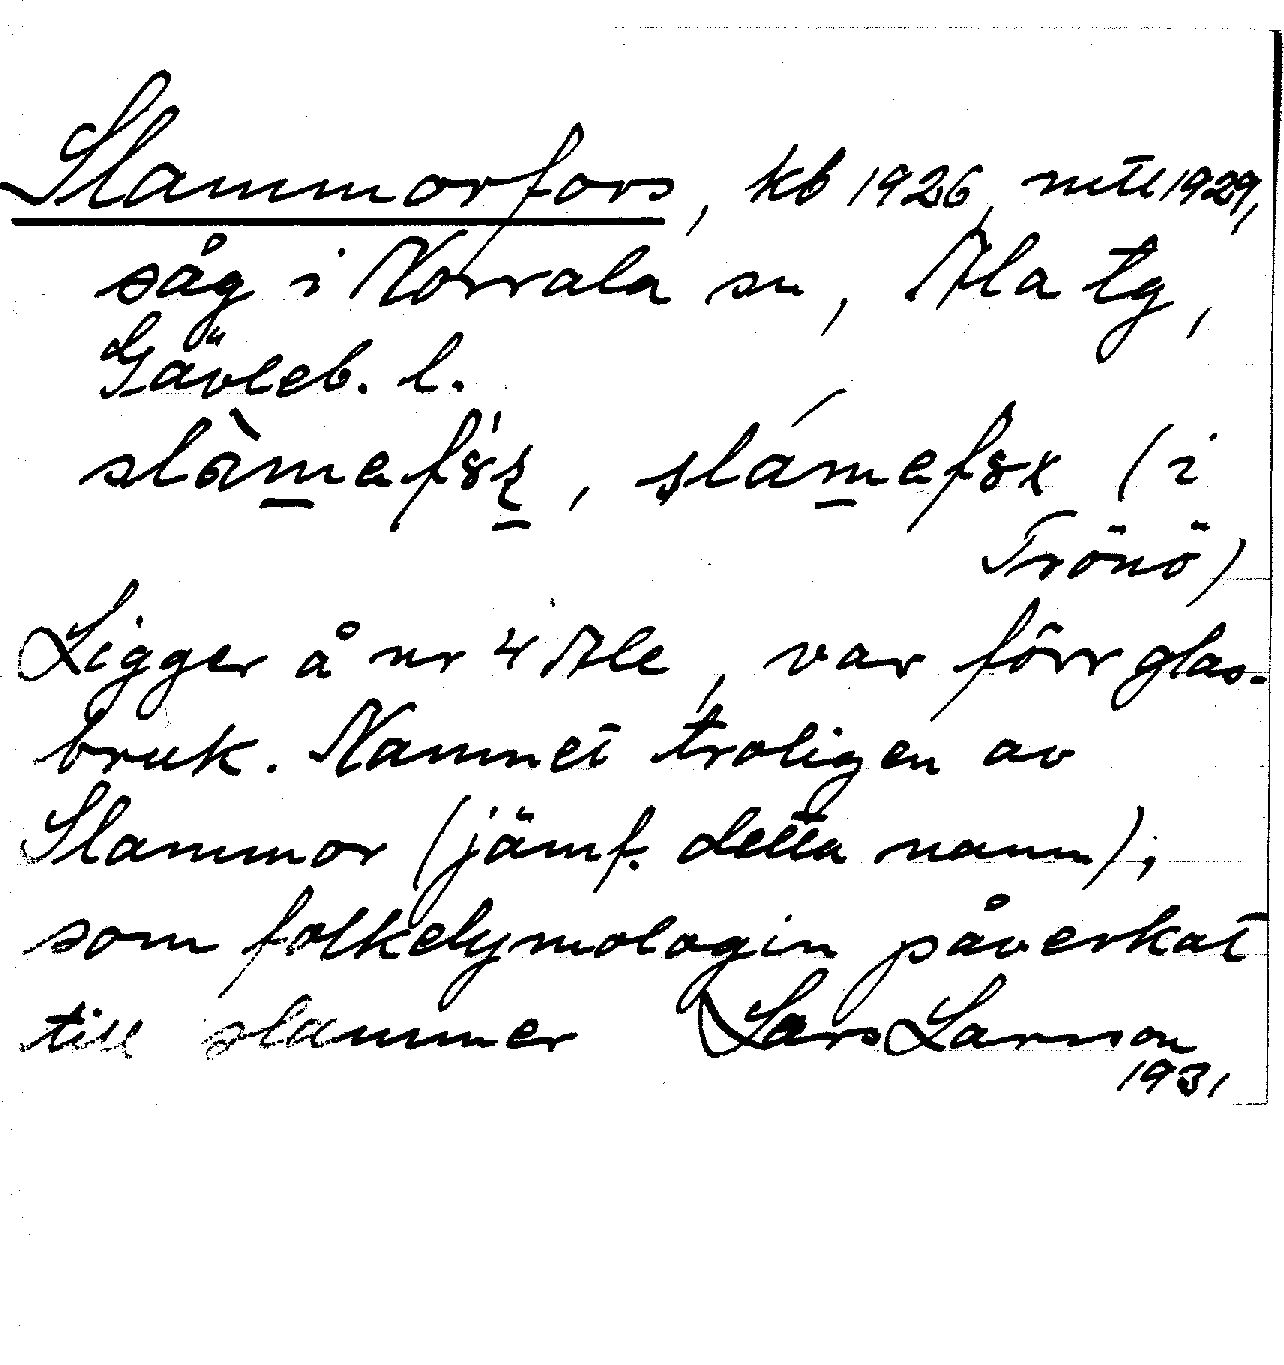 Slammorfors, kb 1926, mtl 1929,
såg i Norrala sn, Ala tg,
Gävleb. l.
(i
Trönö)
Ligger å nr 4 Ale, var förr glas-
bruk. Namnet troligen av
Slammor (jämf. detta namn),
som folketymologin påverkat
till slammer Lars Larsson
1931